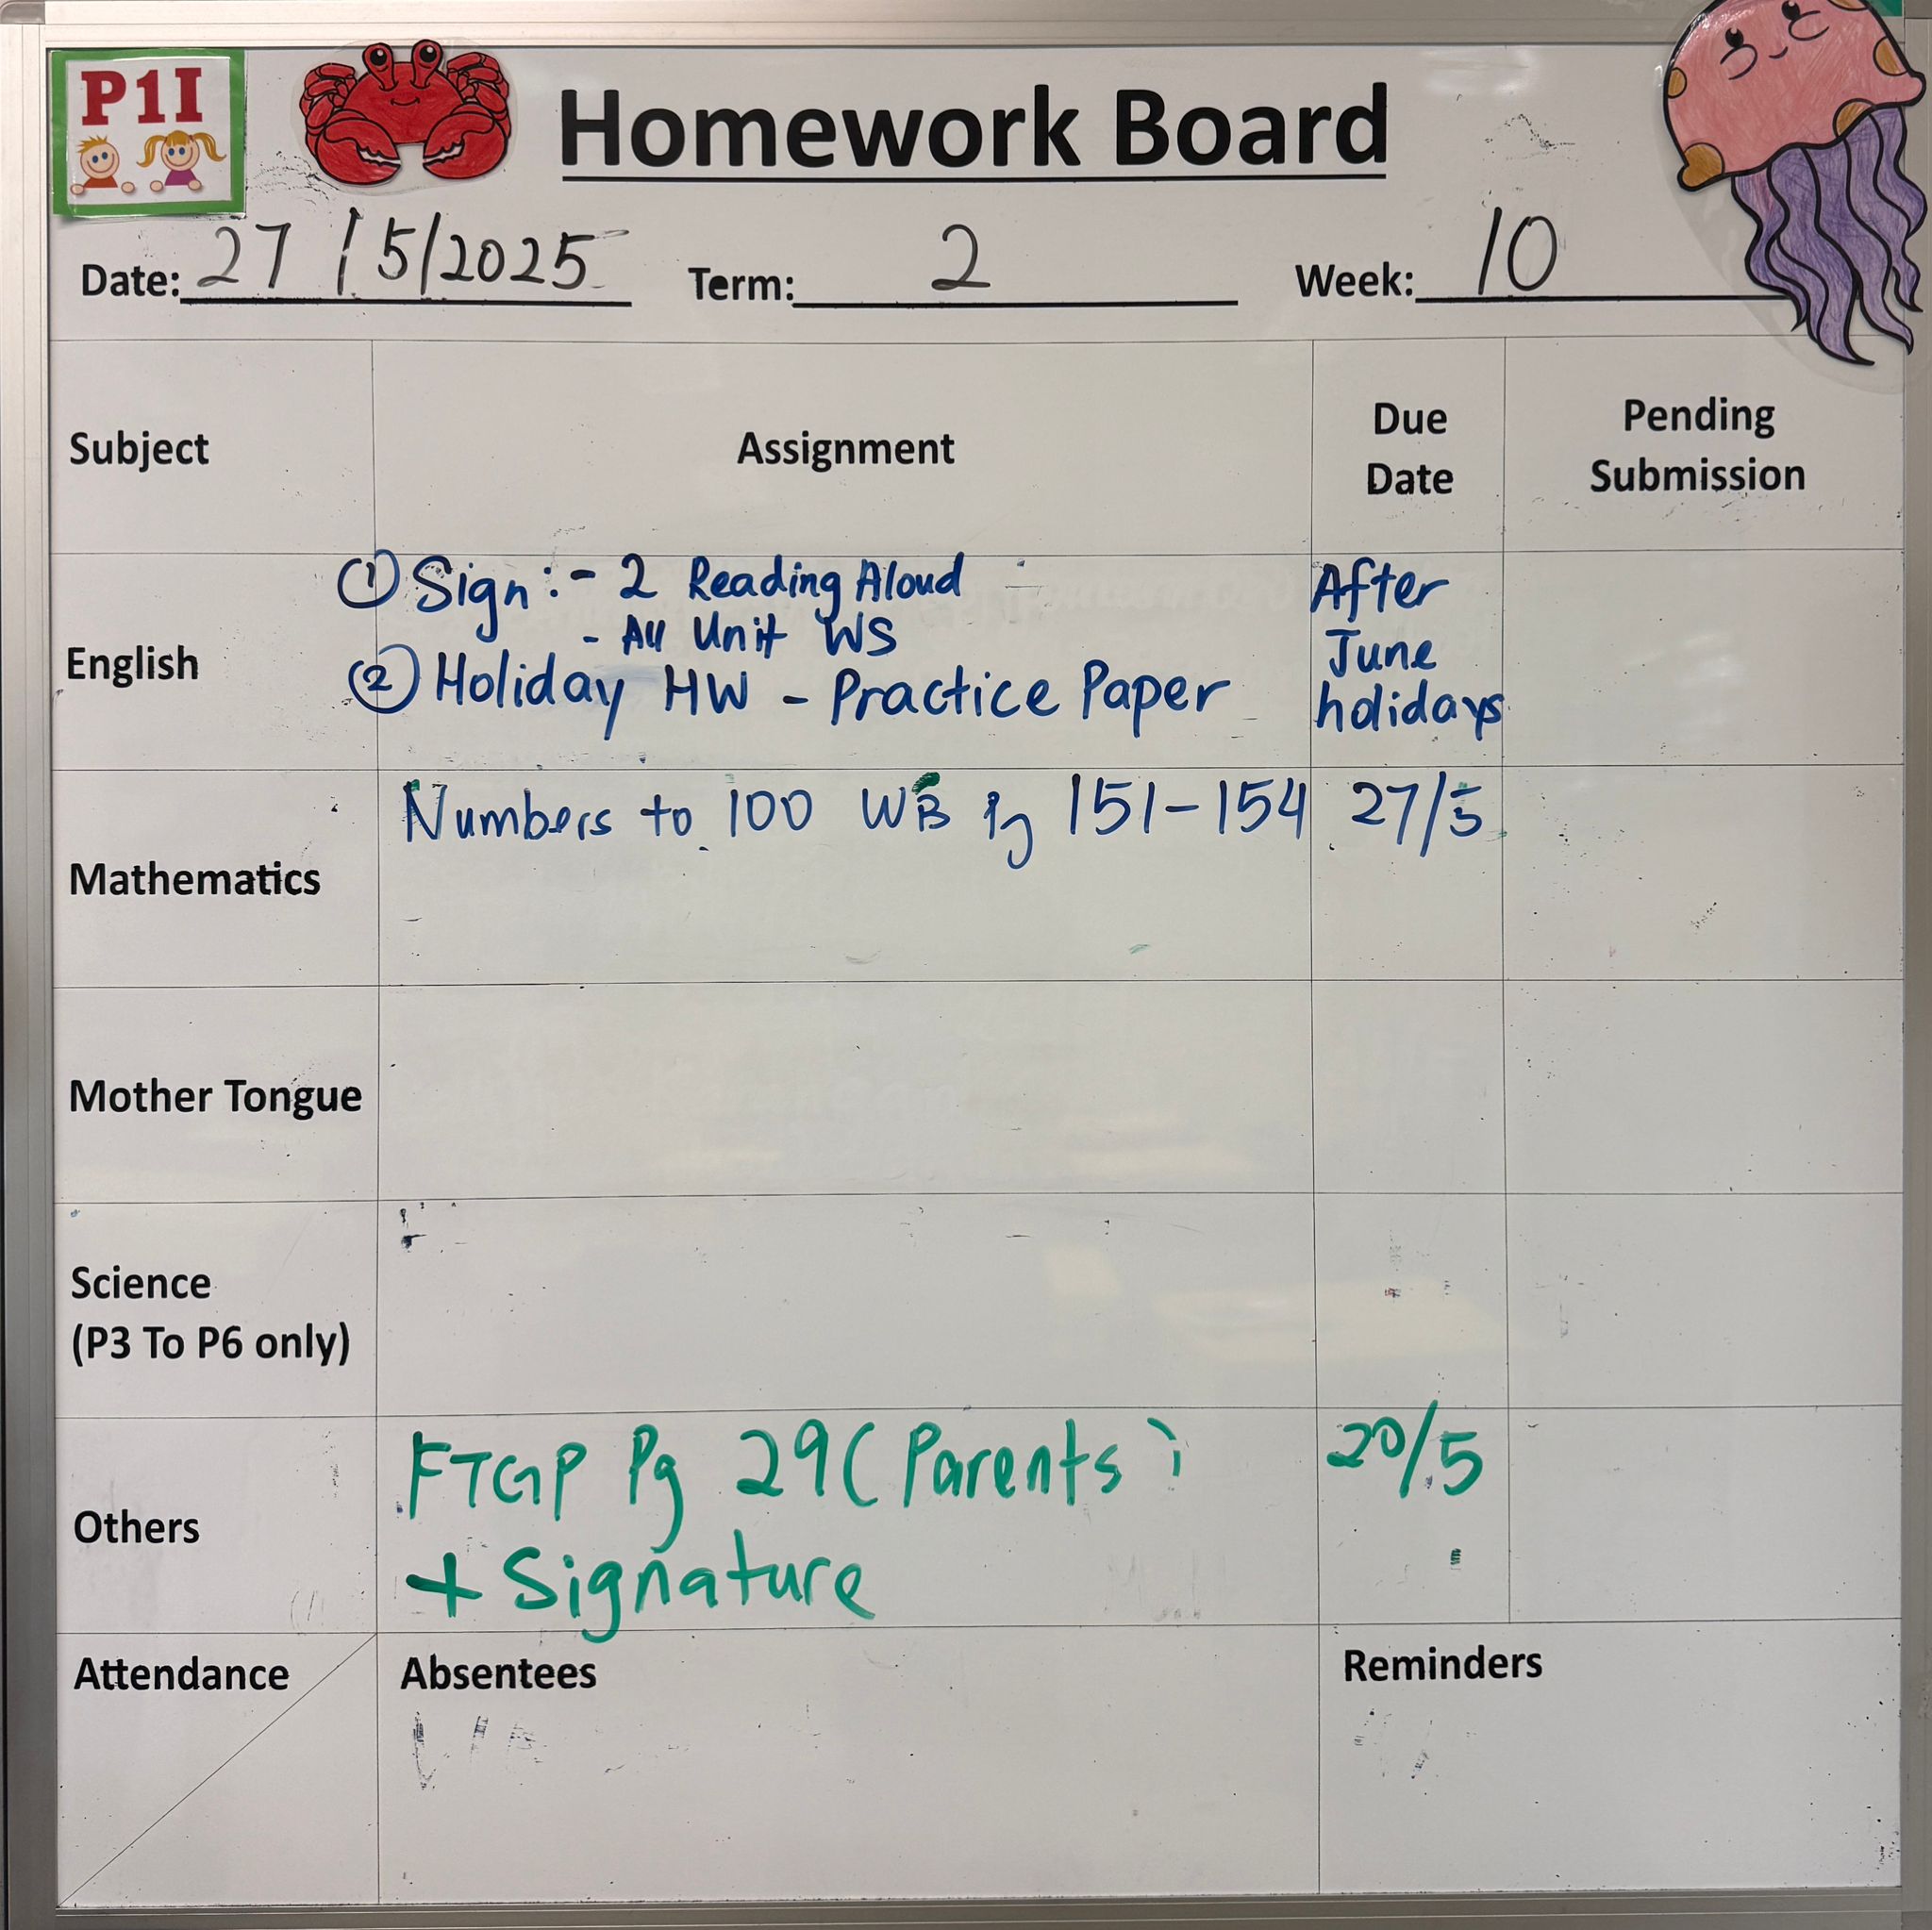 P1I
Homework Board
Date: 27/5/2025 Term: 2 Week: 10
Subject Assignment Due Date Pending Submission
English
① Sign:- 2 Reading Aloud
- All Unit WS
② Holiday HW - Practice Paper
After
June
holidays
Mathematics
Numbers to 100 WB Pg 151-154 27/5
Mother Tongue
Science
(P3 To P6 only)
Others
FTGP Pg 29 (Parents) 20/5
+ Signature
Attendance Absentees Reminders